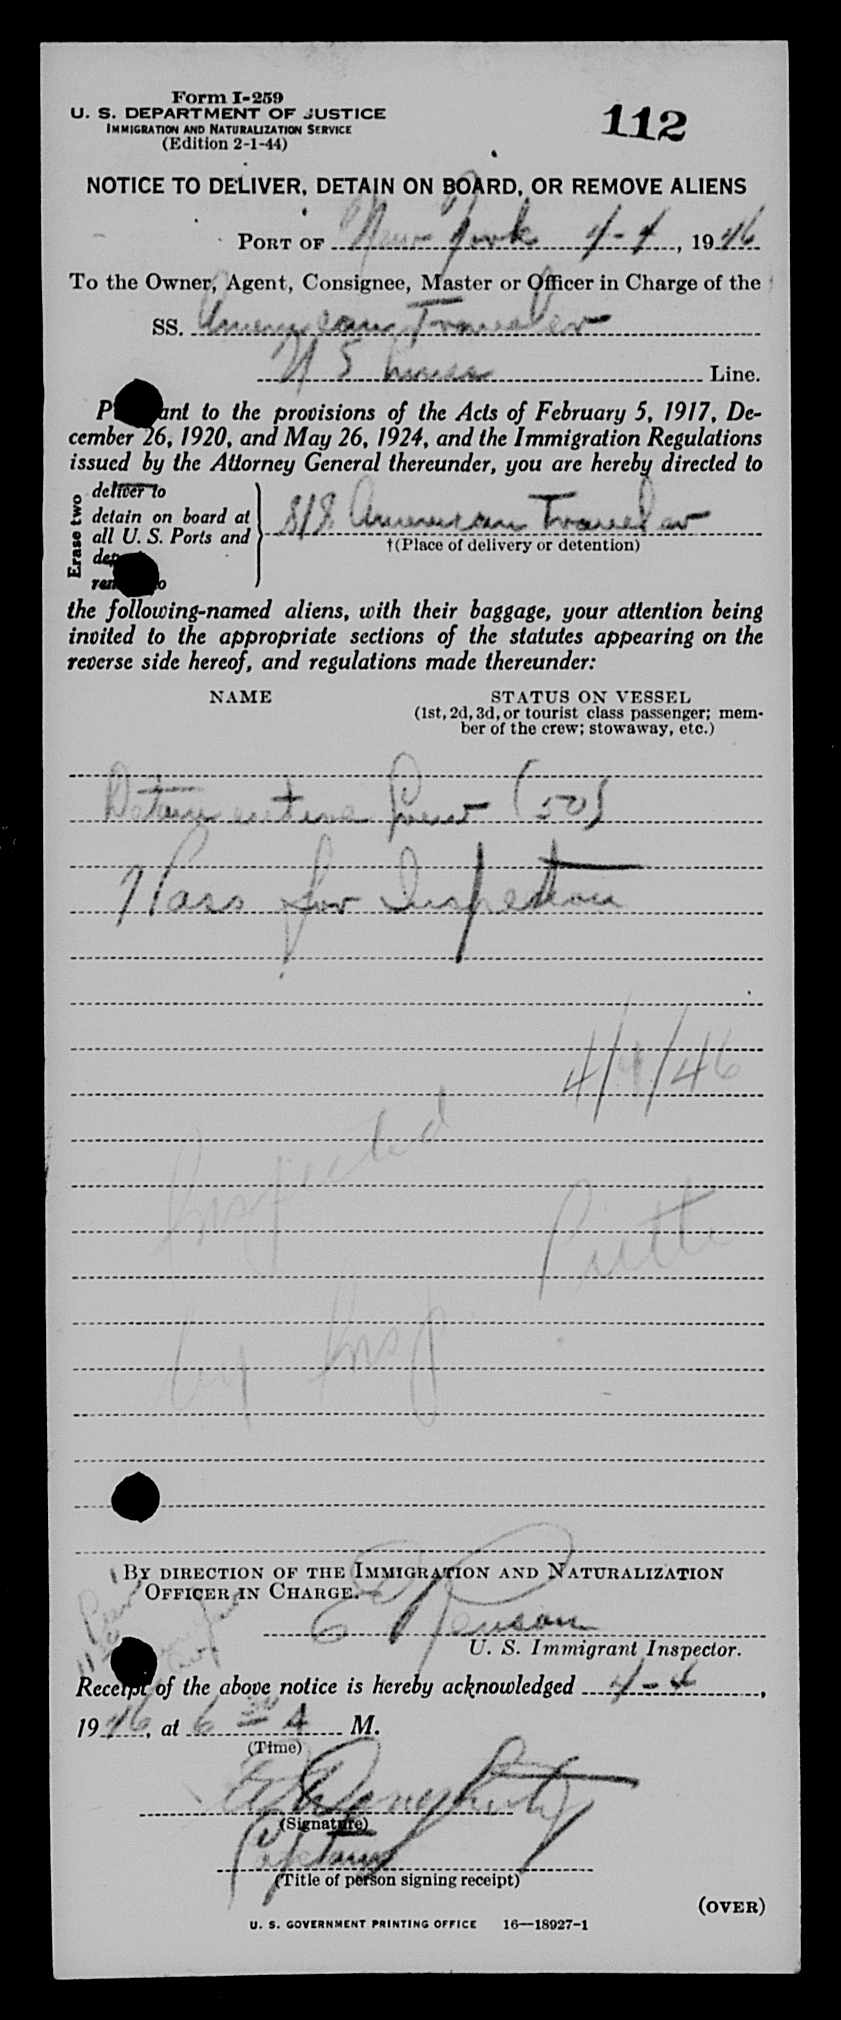 Form I-259
U. S. DEPARTMENT OF JUSTICE
IMMIGRATION AND NATURALIZATION SERVICE
(Edition 2-1-44)
112
NOTICE TO DELIVER, DETAIN ON BOARD, OR REMOVE ALIENS
PORT OF New York 4-4, 1946
To the Owner, Agent, Consignee, Master or Officer in Charge of the
SS. American Traveler
U S Lines Line.
P ant to the provisions of the Acts of February 5, 1917, De-
cember 26, 1920, and May 26, 1924, and the Immigration Regulations
issued by the Attorney General thereunder, you are hereby directed to
Erase two
deliver to
detain on board at
all U. S. Ports and
S/S American Traveler
†(Place of delivery or detention)
the following-named aliens, with their baggage, your attention being
invited to the appropriate sections of the statutes appearing on the
reverse side hereof, and regulations made thereunder:
NAME STATUS ON VESSEL
(1st, 2d, 3d, or tourist class passenger; mem-
ber of the crew; stowaway, etc.)
Detain entire Crew (50)
Hass for Inspection
4/4/46
Inspected
by Insp.
BY DIRECTION OF THE IMMIGRATION AND NATURALIZATION
OFFICER IN CHARGE.
U. S. Immigrant Inspector.
Receipt of the above notice is hereby acknowledged 4-4,
1946, at 6 A M.
(Time)
(Signature)
Captain
(Title of person signing receipt)
(OVER)
U. S. GOVERNMENT PRINTING OFFICE 16—18927-1